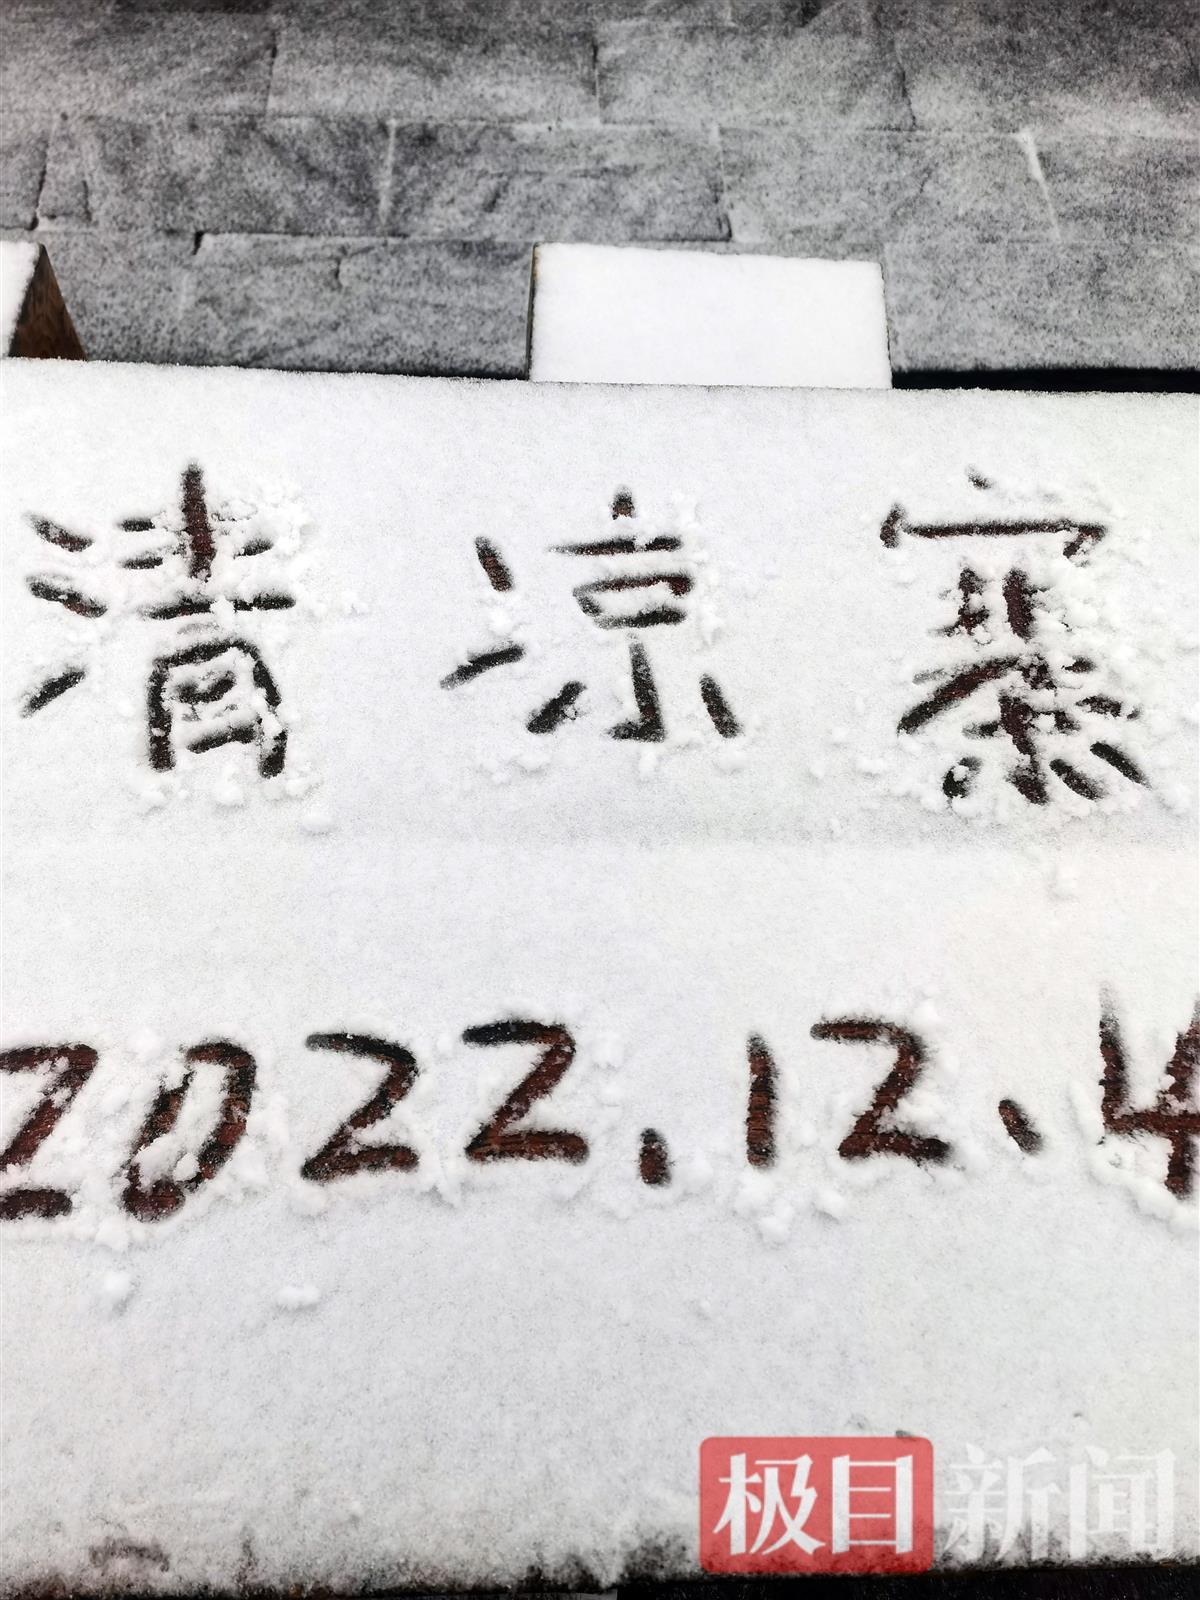 清凉寨
2022.12.4
极目新闻